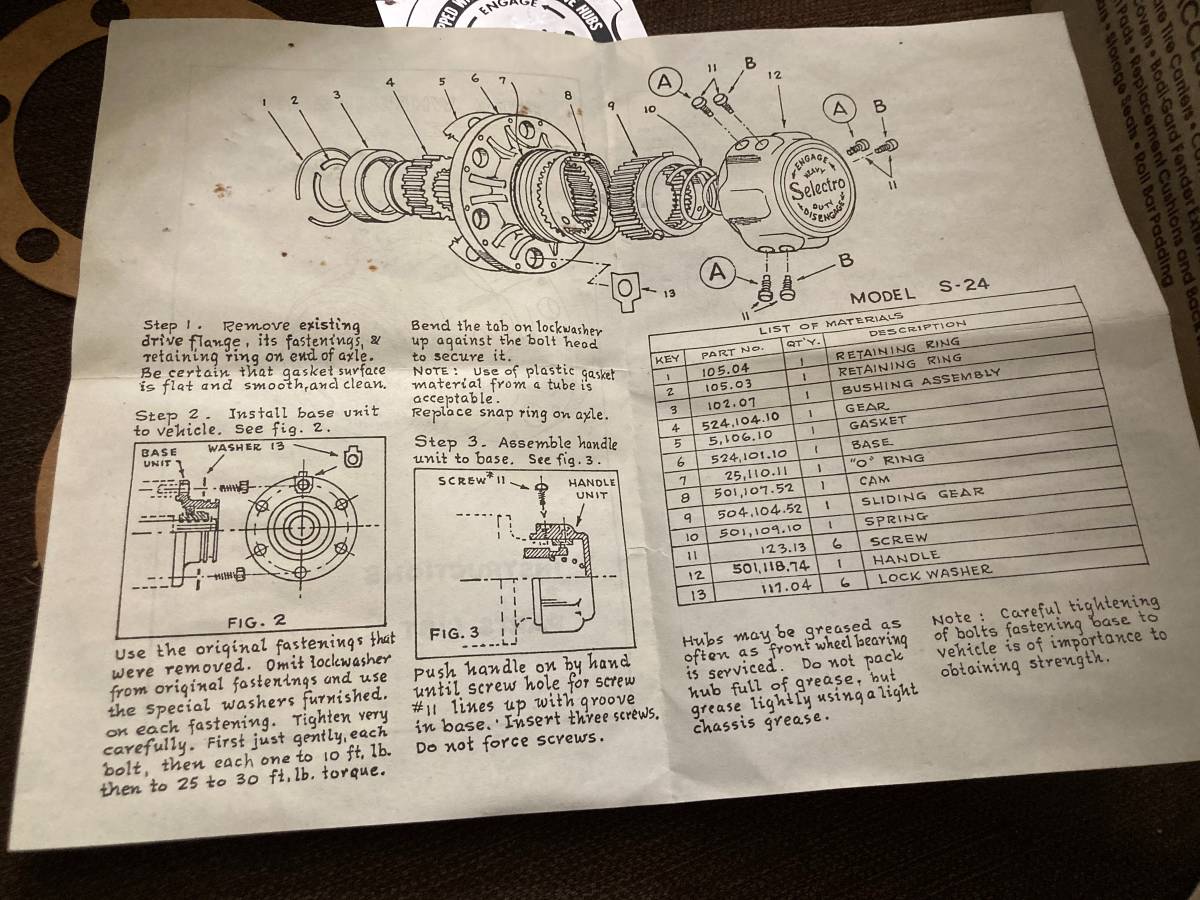 ENGAGE
HUBS
1 2 3 4 5 6 7 8 9 10 11 12
A 11 B
A B
11
ENGAGE
HEAVY
Selectro
DUTY
DISENGAGE
A B
11
13
Step 1. Remove existing
drive flange, its fastenings, &
retaining ring on end of axle.
Be certain that gasket surface
is flat and smooth, and clean.
Step 2. Install base unit
to vehicle. See fig. 2.
BASE
UNIT
WASHER 13
FIG. 2
Use the original fastenings that
were removed. Omit lockwasher
from original fastenings and use
the special washers furnished.
on each fastening. Tighten very
carefully. First just gently, each
bolt, then each one to 10 ft. lb.
then to 25 to 30 ft. lb. torque.
Bend the tab on lockwasher
up against the bolt head
to secure it.
NOTE: Use of plastic gasket
material from a tube is
acceptable.
Replace snap ring on axle.
Step 3. Assemble handle
unit to base. See fig. 3.
SCREW #11
HANDLE
UNIT
FIG. 3
Push handle on by hand
until screw hole for screw
#11 lines up with groove
in base. Insert three screws.
Do not force screws.
MODEL S-24
LIST OF MATERIALS
KEY PART NO. QT'Y. DESCRIPTION
1 105.04 1 RETAINING RING
2 105.03 1 RETAINING RING
3 102.07 1 BUSHING ASSEMBLY
4 524,104.10 1 GEAR
5 5,106.10 1 GASKET
6 524,101.10 1 BASE
7 25,110.11 1 "O" RING
8 501,107.52 1 CAM
9 504,104.52 1 SLIDING GEAR
10 501,109.10 1 SPRING
11 123.13 6 SCREW
12 501,118.74 1 HANDLE
13 117.04 6 LOCK WASHER
Hubs may be greased as
often as front wheel bearing
is serviced. Do not pack
hub full of grease, but
grease lightly using a light
chassis grease.
Note: Careful tightening
of bolts fastening base to
vehicle is of importance to
obtaining strength.
Tire Carriers •
Covers • Bodi-Gard Fender
Pads • Replacement Cushions and
• Storage Seats • Roll Bar Padding